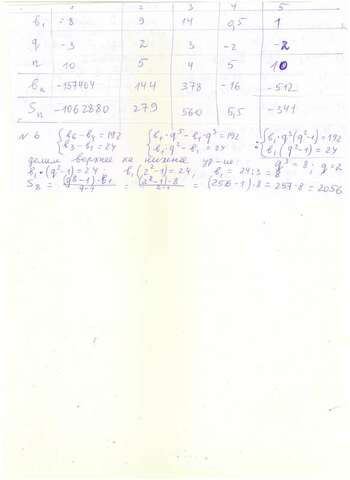 1 2 3 4 5
b₁ -8 9 14 0,5 1
q -3 2 3 -2 -2
n 10 5 4 5 10
bₙ -157464 144 378 -16 -512
Sₙ -1062880 279 560 5,5 -341
№ 6 { b₆ - b₄ = 192 { b₁·q⁵ - b₁·q³ = 192 : { b₁·q³(q²-1) = 192
{ b₃ - b₁ = 24 { b₁·q² - b₁ = 24 { b₁(q²-1) = 24
делим верхнее на нижнее ур-ие: q³ = 8 ; q = 2
b₁·(q²-1) = 24 ; b₁(2²-1) = 24, b₁ = 24:3 = 8
S₈ = (q⁸-1)·b₁/q-1 = (2⁸-1)·8/2-1 = (256-1)·8 = 257·8 = 2056